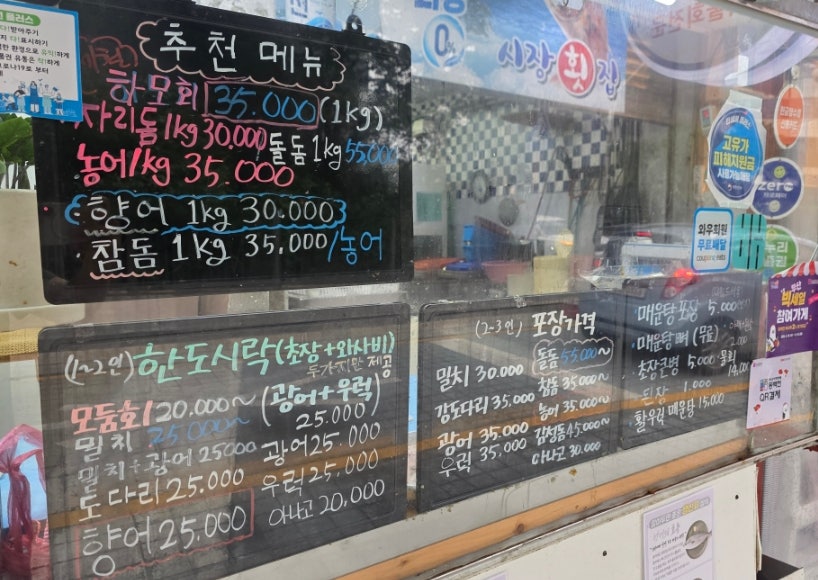 추천 메뉴
하모회 35.000 (1kg)
자리돔 1kg 30.000
돌돔 1kg 55.000
농어/kg 35.000
향어 1kg 30.000
참돔 1kg 35.000/농어
(1~2인) 한도시락 (초장+와사비)
두가지만 제공
모듬회 20.000~
밀치 25.000~
밀치+광어 25000
도다리 25.000
향어 25.000
(광어+우럭)
25.000
광어 25.000
우럭 25.000
아나고 20,000
(2-3인) 포장가격
밀치 30.000
감도다리 35.000
광어 35.000
우럭 35.000
돌돔 55.000~
참돔 35.000~
농어 35.000~
감청돔 45.000~
아나고 30.000
매운탕 포장 5.000
초장한병 5,000
된장 1.000
활우럭 매운탕 15.000
0%
시장 횟집
고유가
피해지원금
사용가능매장
zero
와우회원
무료배달
coupang eats
누리
빅세일
참여가게
QR결제